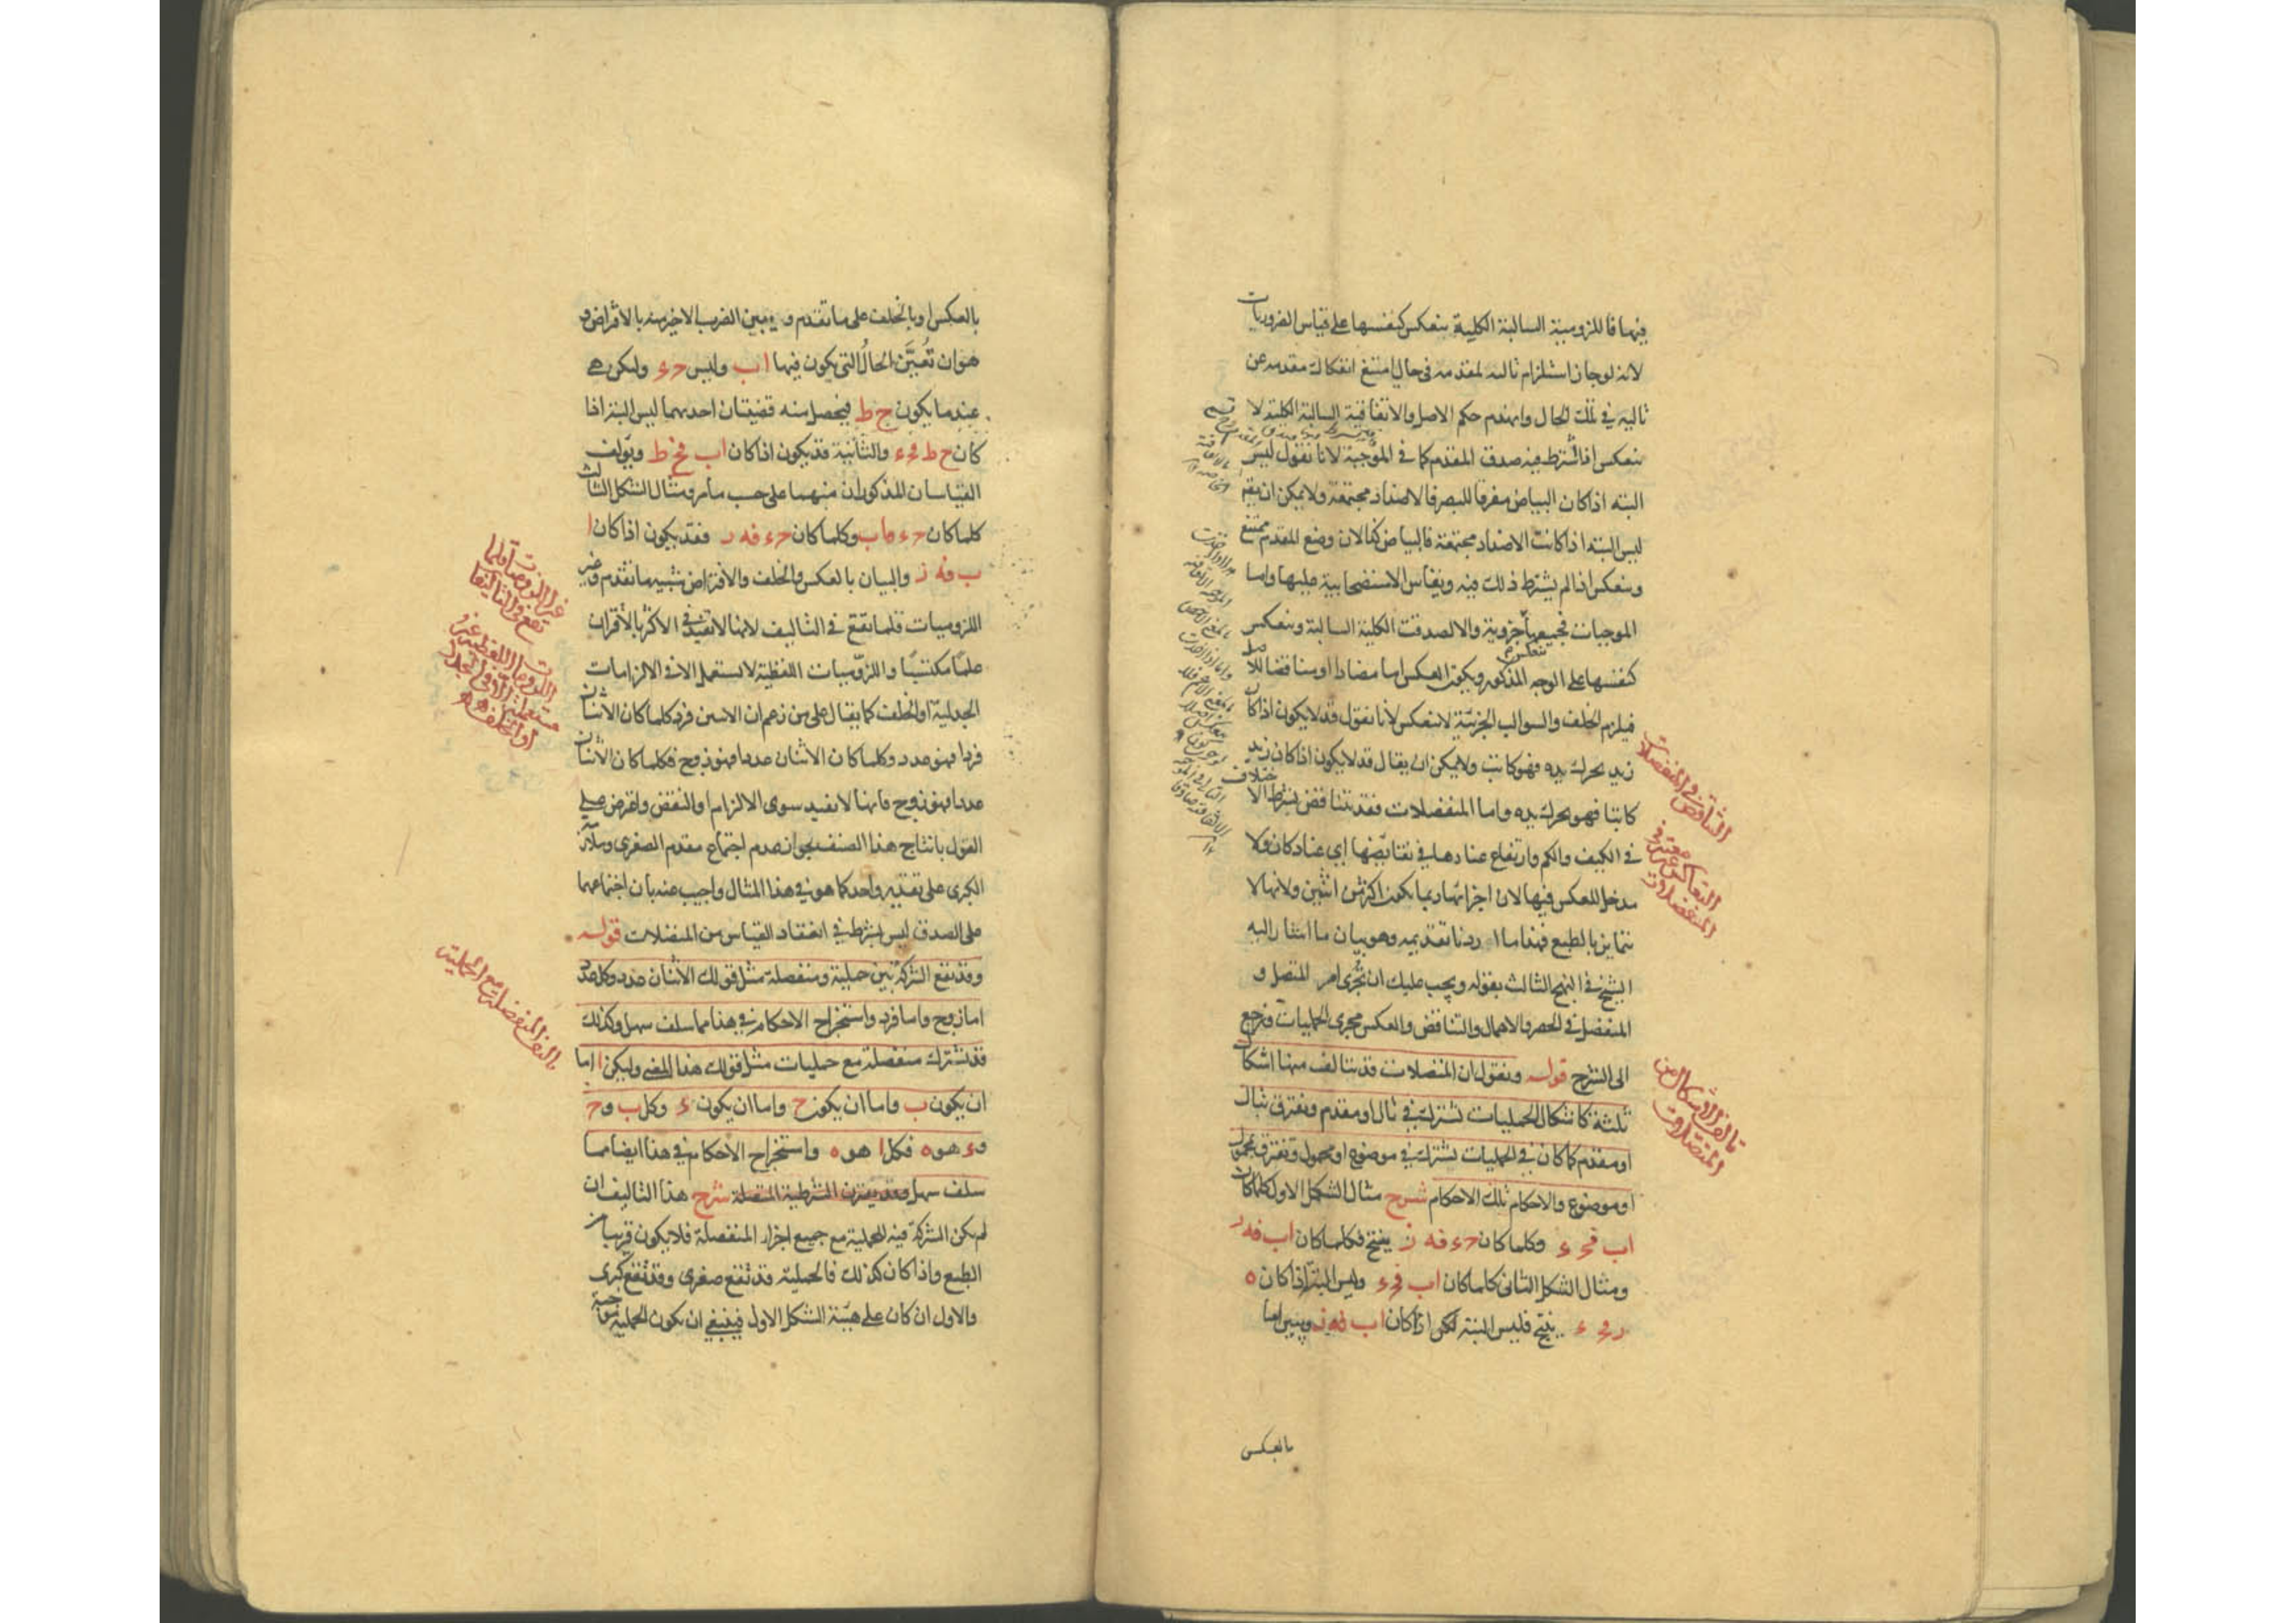 فيها فاللزومية السالبة الكلية ينعكس كنفسها على قياس الضروريات
لانه لو جاز استلزام تاليه لمقدمه في حال امتنع انفكاك مقدمه عن
تاليه في تلك الحال وانهدم حكم الاصل والاتفاقية السالبة الكلية لا
ينعكس اذا اشترط فيه صدق المقدم كما في الموجبة لانا نقول ليس
البته اذا كان البياض مفرقا للبصر فالاضداد مجتمعة ولا يمكن ان يقـ
ليس البته اذا كانت الاضداد مجتمعة فالبياض كذا لان وضع المقدم ممتنع
وينعكس اذا لم يشترط ذلك فيه ويقاس الاستصحابية عليها واما
الموجبات فجميعها جزوية والا لصدقت الكلية السالبة وينعكس
كنفسها على الوجه المذكور ويكون العكس اما مضادا او مناقضا للاصل
فيلزم الخلف والسوالب الجزئية لا ينعكس لانا نقول قد لا يكون اذا كان
زيد يحرك يده فهو كاتب ولا يمكن ان يقال قد لا يكون اذا كان زيد
كاتبا فهو يحرك يده واما المنفصلات فقد يتناقض بشرط الاختلاف
في الكيف والكم وارتفاع عنادها في نقائضها اي عناد كان ولا
مدخل للعكس فيها لان اجزائها ربما يكون اكثر من اثنين ولانها لا
تتمايز بالطبع فهذا ما اردنا تقديمه وهو بيان ما اشار اليه
الشيخ في النهج الثالث بقوله ويجب عليك ان تجرى امر المتصل و
المنفصل في الحصر والاهمال والتناقض والعكس مجرى الحمليات ونرجع
الى الشرح قوله ونقول ان المتصلات قد يتالف منها اشكال
ثلثة كاشكال الحمليات تشترك في تال او مقدم ويفترق بتال
او مقدم كما كان في الحمليات تشترك في موضوع او محمول وتفترق بمحمول
او موضوع والاحكام تلك الاحكام شرح مثال الشكل الاول كلما كان
ا ب فح ء وكلما كان ح ء فه ز ينتج فكلما كان ا ب فه ز
ومثال الشكل الثانى كلما كان ا ب فح ء وليس البتة اذا كان ه
ز فح ء ينتج فليس البتة اذا كان ا ب فه ز ويبين اما
بالعكس
التناقض في المنفصلات
التعاكس غير معتبر في
المنفصلات
تالف الاشكال من
المتصلات
بالعكس او بالخلف على ما تقدم ويبين الضرب الاخير منه بالافتراض و
هو ان تُعيَّن الحالُ التى يكون فيها ا ب وليس ح ء وليكن هى
عندما يكون ح ط فيحصل منه قضيتان احديهما ليس البتة اذا
كان ح ط فح ء والثانية قد يكون اذا كان ا ب فح ط ويؤلف
القياسان المذكوران منهما على حسب ما مر ومثال الشكل الثالث
كلما كان ح ء فا ب وكلما كان ح ء فه ز فقد يكون اذا كان ا
ب فه ز والبيان بالعكس والخلف والافتراض شبيه ما تقدم وغير
اللزوميات قلما تقع في التاليف لانها لا تفيد في الاكثر بالاقتران
علما مكتسبا واللزوميات اللفظية لا تستعمل الا في الالزامات
الجدلية او الخلف كما يقال على من زعم ان الاثنين فرد كلما كان الاثنان
فردا فهو عدد وكلما كان الاثنان عددا فهو زوج فكلما كان الاثنان
عددا فهو زوج فانها لا تفيد سوى الالزام او النقض واعترض على
القول بانتاج هذا الصنف بجواز عدم اجتماع مقدم الصغرى وملازمة
الكبرى على تقدير واحد كما هو في هذا المثال واجيب عنه بان اجتماعهما
على الصدق ليس بشرط في انعقاد القياس من المتصلات قوله
وقد تقع الشركة بين حملية ومنفصلة مثل قولك الاثنان عدد وكل عدد
اما زوج واما فرد واستخراج الاحكام في هذا مما سلف سهل وكذلك
قد تشترك منفصلة مع حمليات مثل قولك هذا المعنى وليكن ا اما
ان يكون ب واما ان يكون ح واما ان يكون ء وكل ب وح
وء هو ه فكل ا هو ه واستخراج الاحكام في هذا ايضا مما
سلف سهل وقد يقترن الشرطية المتصلة شرح هذا التاليف ان
لم يكن الشركة فيه للحملية مع جميع اجزاء المنفصلة فلا يكون قريبا من
الطبع واذا كان كذلك فالحملية قد تقع صغرى وقد تقع كبرى
والاول ان كان على هيئة الشكل الاول فينبغى ان يكون الحملية موجبة
غير اللزوميات قلما
تقع في التاليفات
اللزوميات اللفظية غير
مستعملة الا في الجدل
او الخلف
تاليف المنفصلة مع الحملية